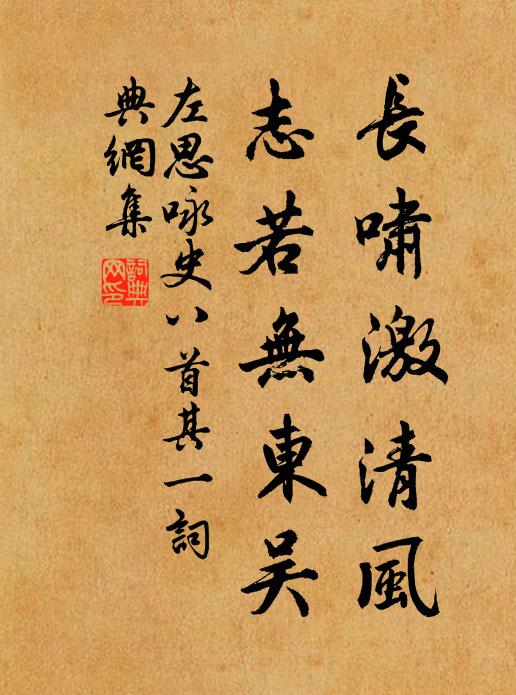 長嘯激清風
志若無東吴
左思咏史八首其一詞
典網集
詞典網印